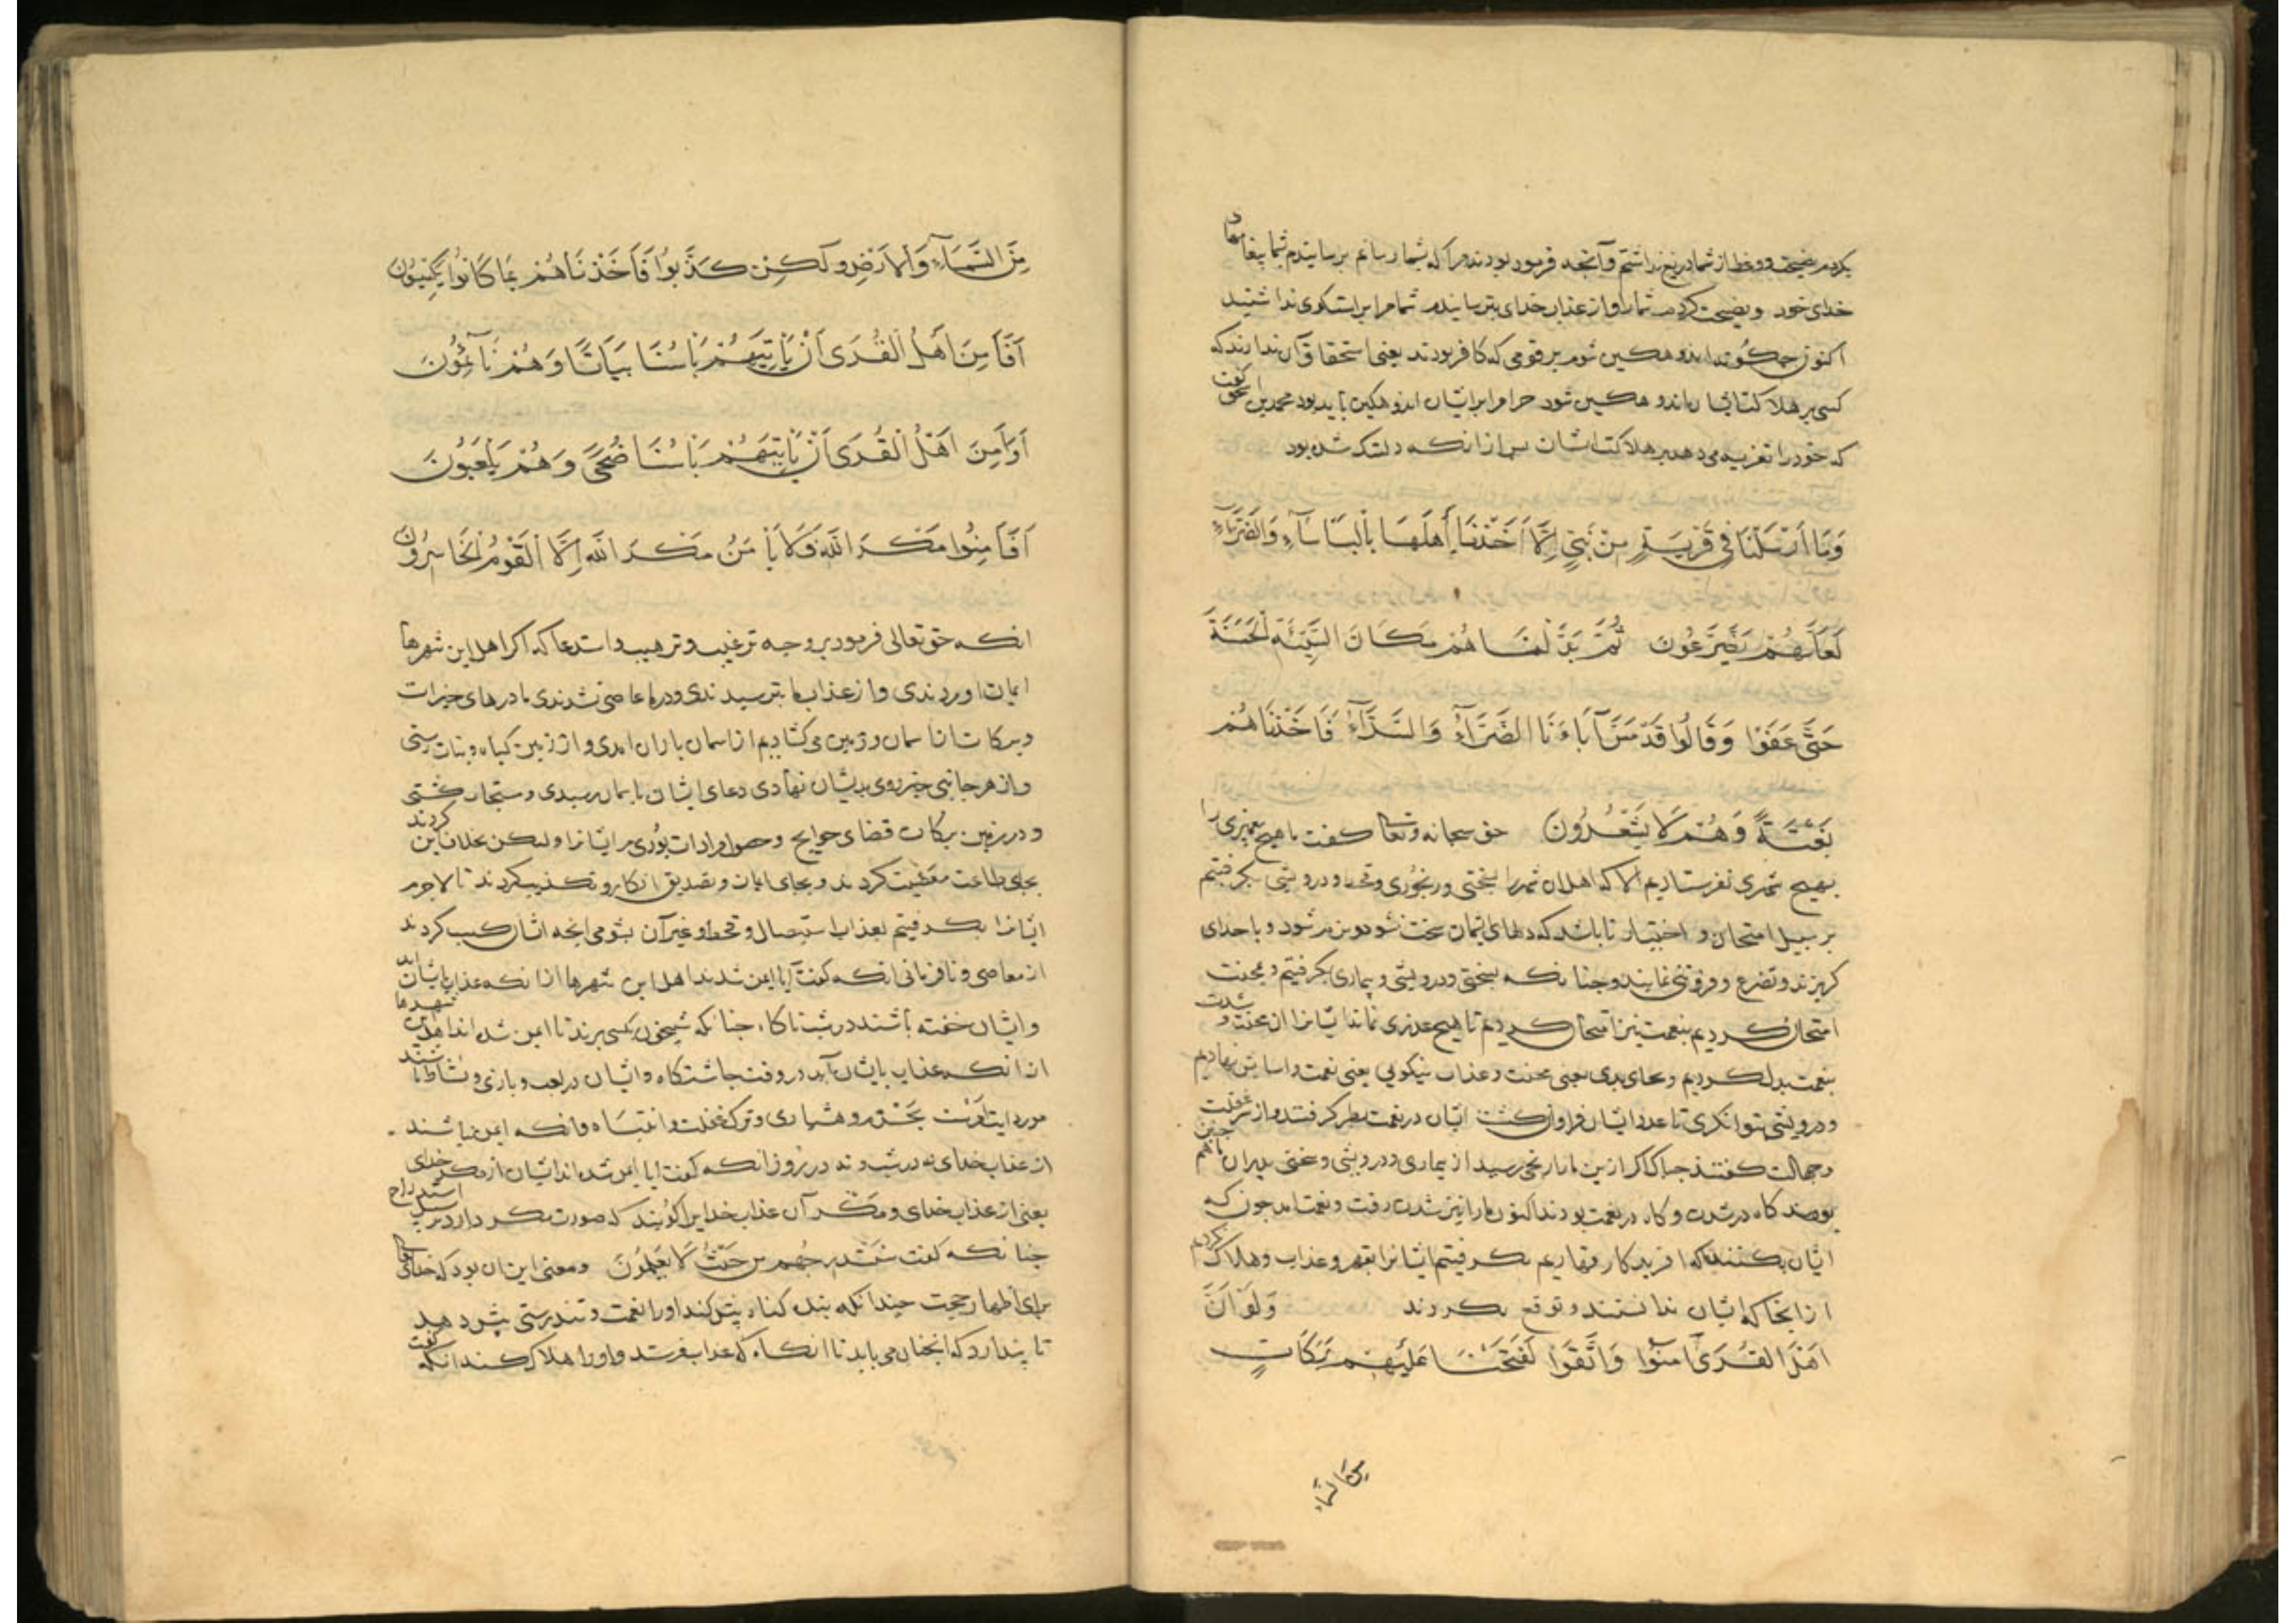 بکردم نصیحت و وعظ از شما دریغ نداشتم و آنجه فرموده بودند مرا که بشما رسانم برسانیدم بشما پیغامهاء
خدای خود و نصیحت کردم شما را و از عذاب خدای بترسانیدم شما مرا براستکوی نداشتید
اکنون جکونه اندوهکین شوم بر قومی که کافر بودند یعنی استحقاق آن ندارند که
کسی بر هلاکت ایشان اندوهکین شود جرا مرا بر ایشان اندوهکین باید بود محمد بن اسحق کفت
که خود را تعزیه می دهد بر هلاکت ایشان بس از انکه دلتنک شده بود
وَمَا اَرْسَلْنَا فِي قَرْيَةٍ مِنْ نَبِيٍّ اِلَّا اَخَذْنَا أَهْلَهَا بِالْبَأْسَاءِ وَالضَّرَّاءِ
لَعَلَّهُمْ يَضَّرَّعُونَ ثُمَّ بَدَّلْنَا هُمْ مَكَانَ السَّيِّئَةِ الْحَسَنَةَ
حَتَّى عَفَوْا وَقَالُوا قَدْ مَسَّ آبَاءَنَا الضَّرَّاءُ وَالسَّرَّاءُ فَاَخَذْنَاهُمْ
بَغْتَةً وَهُمْ لَا يَشْعُرُونَ حق سبحانه وتعالی کفت ما هیج پیغمبری را
بهیج شهری نفرستادیم الا که اهل ان شهر را بسختی و رنجوری و قحط و درویشی بکرفتیم
بر سبیل امتحان و اختبار تا باشد که دلهای ایشان سخت نشود و نرم شود و با خدای
کریزند و تضرع و فروتنی نمایند و جنانکه بسختی و درویشی و بیماری بکرفتیم و بمحنت
امتحان کردیم بنعمت نیز امتحان کردیم تا هیج عذری نماند ایشانرا ان محنت و شدت
بنعمت بدل کردیم و بجای بدی یعنی محنت و عذاب نیکویی یعنی نعمت و اسایش نهادیم
و درویشی بتوانکری تا عدد ایشان فراوان کشت ایشان در نعمت بطر کرفتند و از سر غفلت
و جهالت کفتند جه باک اکر ازین ما را رنجی رسید از بیماری و درویشی و سختی پدران ما هم جنین
بودند کاه در شدت و کاه در نعمت بودند اکنون ما را نیز شدت رفت و نعمت امد جون که
ایشان بکفتند ما که افریدکار قهاریم بکرفتیم ایشانرا بقهر و عذاب و هلاک کردیم
از انجا که ایشان ندانستند و توقع نکردند وَلَوْ اَنَّ
اَهْلَ الْقُرَى آمَنُوا وَاتَّقَوْا لَفَتَحْنَا عَلَيْهِمْ بَرَكَاتٍ
مِنَ السَّمَاءِ
مِنَ السَّمَاءِ وَالْاَرْضِ وَلَكِنْ كَذَّبُوا فَاَخَذْنَاهُمْ بِمَا كَانُوا يَكْسِبُونَ
اَفَاَمِنَ اَهْلُ الْقُرَى اَنْ يَأْتِيَهُمْ بَأْسُنَا بَيَاتًا وَهُمْ نَائِمُونَ
اَوَاَمِنَ اَهْلُ الْقُرَى اَنْ يَأْتِيَهُمْ بَأْسُنَا ضُحًى وَهُمْ يَلْعَبُونَ
اَفَاَمِنُوا مَكْرَ اللهِ فَلَا يَأْمَنُ مَكْرَ اللهِ اِلَّا الْقَوْمُ الْخَاسِرُونَ
انکه حق تعالی فرمود بر وجه ترغیب و ترهیب و استدعا که اکر اهل این شهرها
ایمان اوردندی و از عذاب ما بترسیدندی و در ما عاصی نشدندی ما درهای خیرات
و برکات از اسمان و زمین می کشادیم از اسمان باران امدی و از زمین کیاه و نبات رستی
و از هر جانبی خیر روی بدیشان نهادی دعای ایشان باسمان رسیدی و مستجاب کشتی
و در زمین برکات قضای حوایج و حصول مرادات بودی مر ایشانرا ولیکن بخلاف این کردند
بجای طاعت معصیت کردند و بجای ایمان و تصدیق انکار و تکذیب کردند تا لاجرم
ایشانرا بکرفتیم بعذاب استیصال و قحط و غیر آن بشومی انجه ایشان کسب کردند
از معاصی و نافرمانی انکه کفت آیا ایمن شدند اهل این شهرها از انکه عذاب بایشان اید
و ایشان خفته باشند در شب ناکاه جنانکه شبیخون بکسی برند تا ایمن شده اند اهل این شهرها
از انکه عذاب بایشان آید در وقت جاشتکاه و ایشان در لعب و بازی و نشاط باشند
مورد ایت اوّلست بحزم و هشیاری و ترک غفلت و انتباه و انکه ایمن نباشند
از عذاب خدای نه در شب و نه در روز انکه کفت ایا ایمن شده اند ایشان از مکر خدای
یعنی از عذاب خدای و مکر آن عذاب خدایرا کویند که صورت مکر دارد بر سبیل استدراج
جنانکه کفت سَنَسْتَدْرِجُهُمْ مِنْ حَيْثُ لَا يَعْلَمُونَ و معنی این ان بود که خدای تعالی
برای اظهار حجت جندانکه بنده کناه بیش کند او را نعمت و تندرستی بیشتر دهد
تا پندارد که انجنان می باید تا انکاه که عذاب فرستد و او را هلاک کند انکه کفت